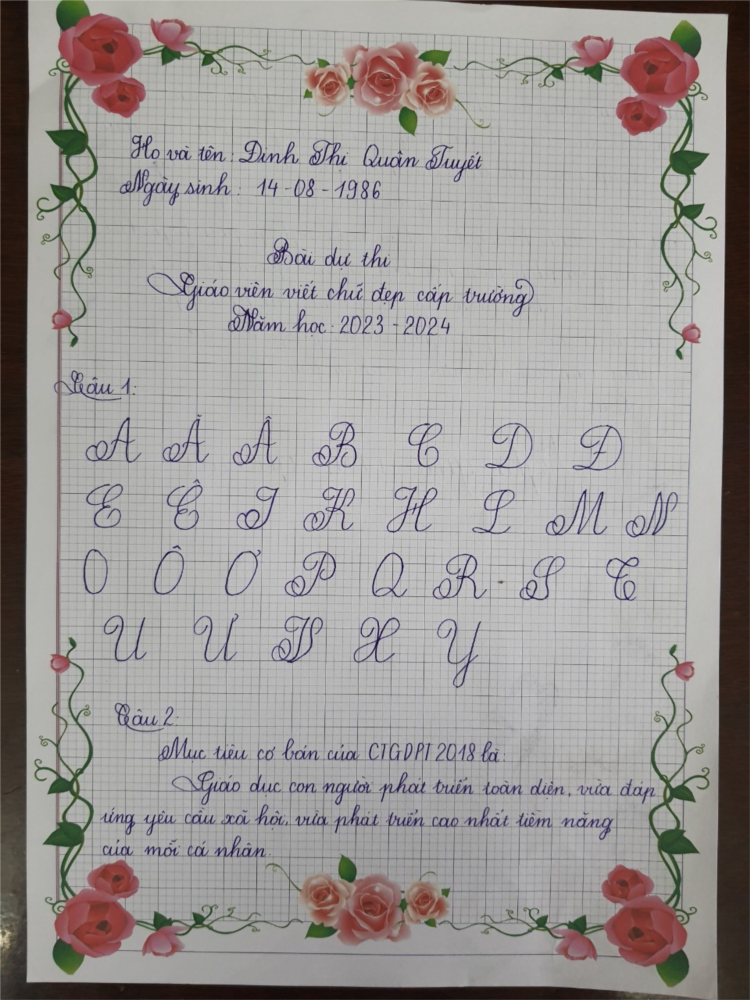 Họ và tên: Đinh Thị Quân Tuyết
Ngày sinh: 14-08-1986
Bài dự thi
Giáo viên viết chữ đẹp cấp trường
Năm học: 2023-2024
Câu 1:
A Ă Â B C D Đ
E Ê I K H L M N
O Ô Ơ P Q R S T
U Ư V X Y
Câu 2:
Mục tiêu cơ bản của CTGDPT 2018 là:
Giáo dục con người phát triển toàn diện, vừa đáp
ứng yêu cầu xã hội, vừa phát triển cao nhất tiềm năng
của mỗi cá nhân.